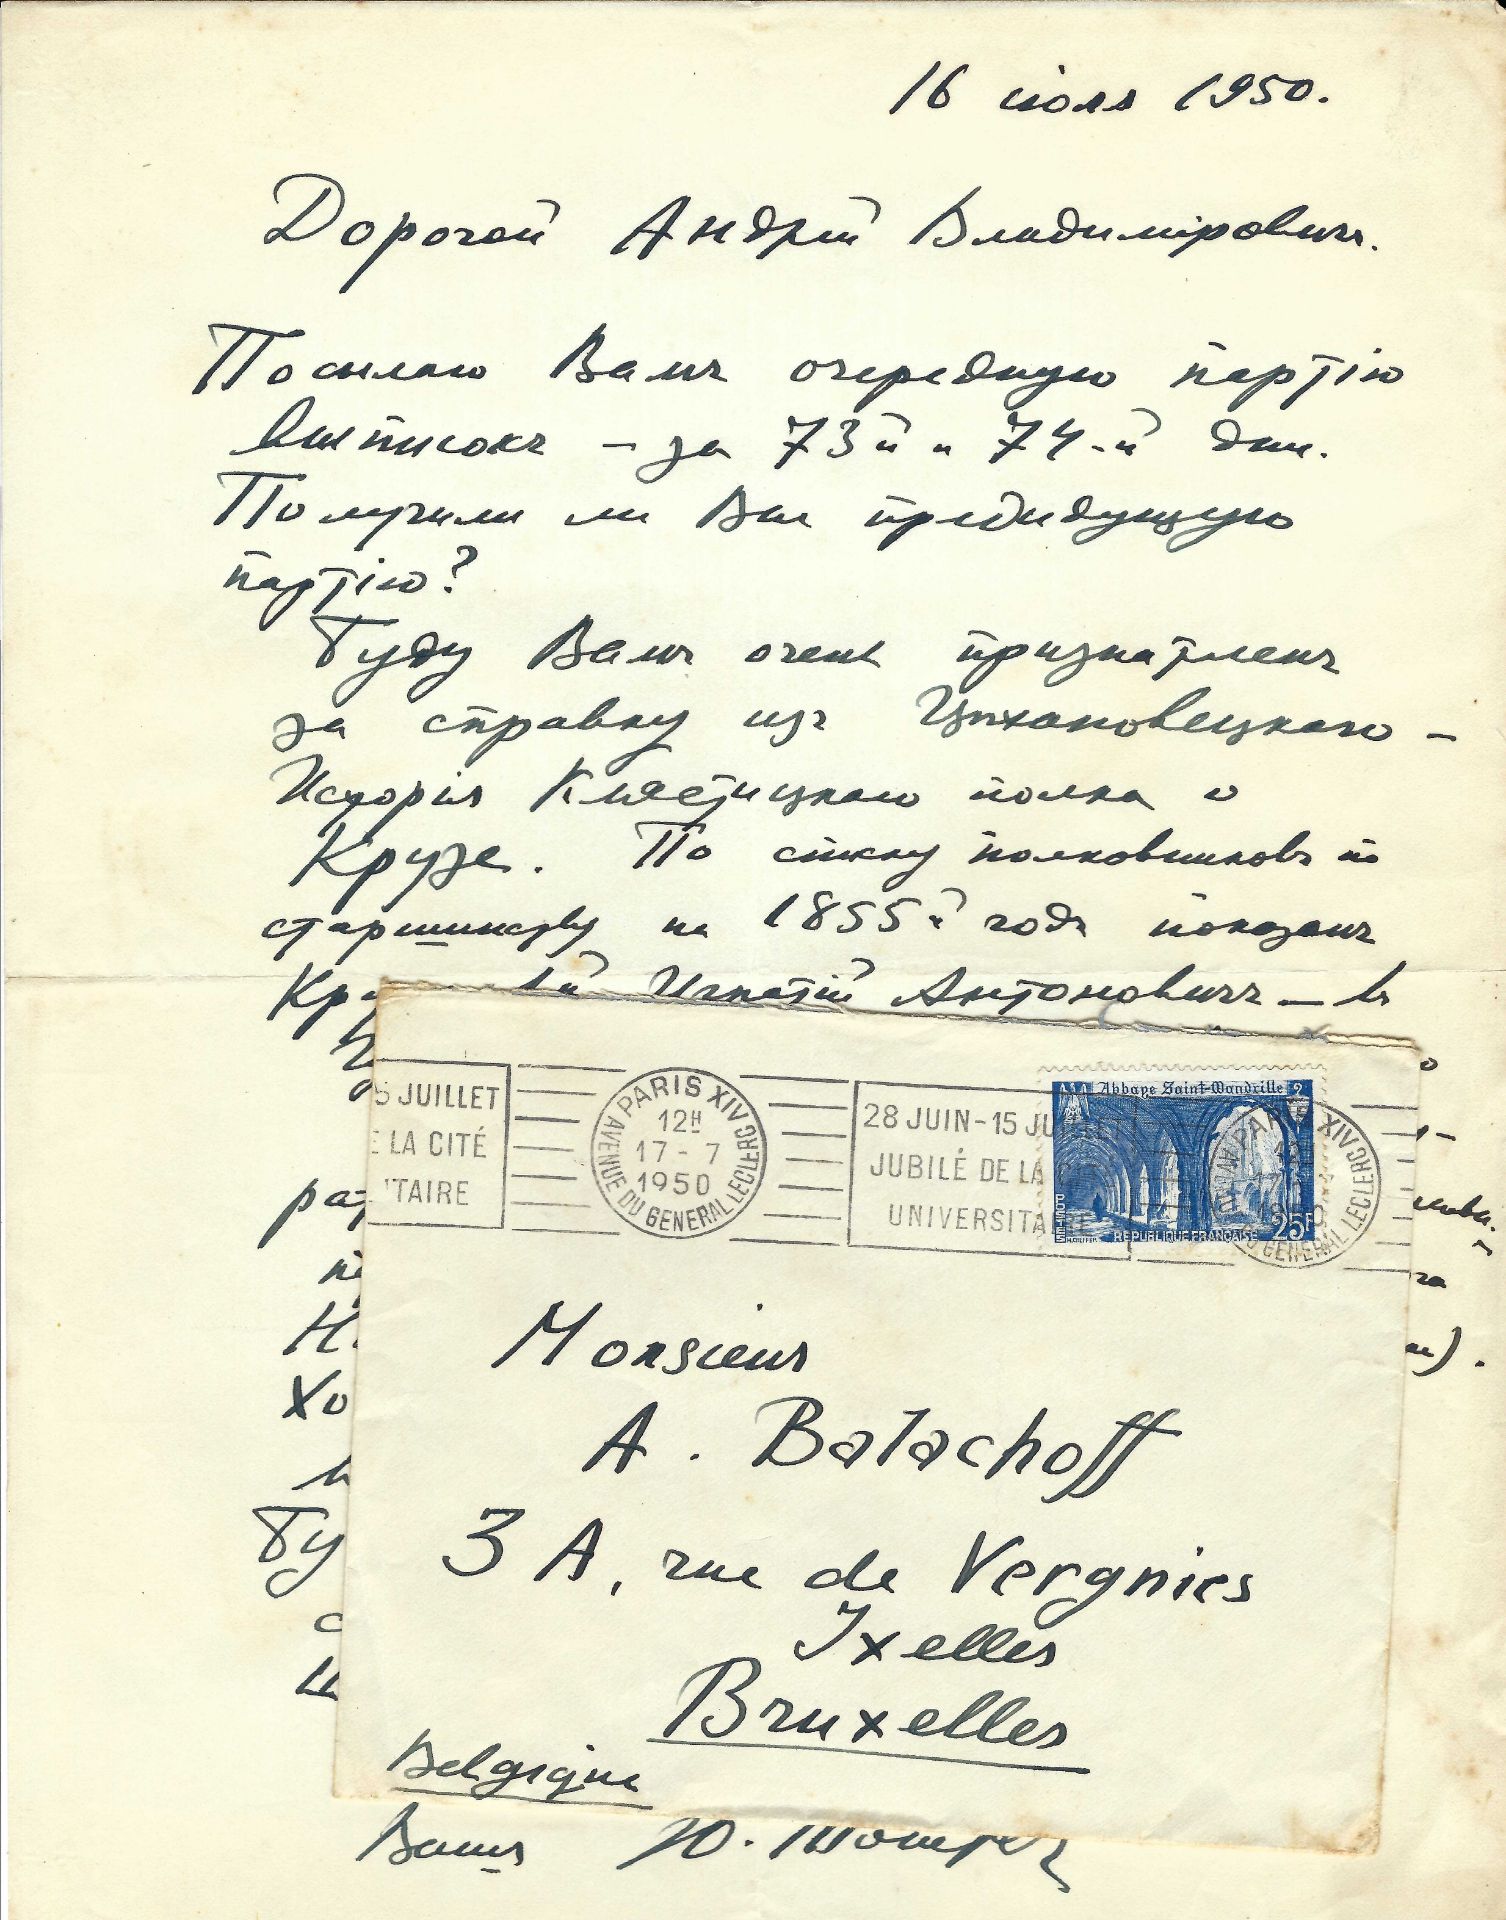 16 июля 1950.
Дорогой Андрій Владиміровичъ.
Посылаю Вамъ очередную партію
выписокъ – за 73й и 74-й дни.
Получили ли Вы предидущую
партію?
Буду Вамъ очень признателенъ
за справку изъ Цѣхановецкаго –
Исторія Клястицкаго полка о
Крузе. По списку полковниковъ по
старшинству на 1855й годъ показанъ
Игнатій Антоновичъ – въ
5 JUILLET
E LA CITÉ
ITAIRE
PARIS XIV
AVENUE DU GENERAL LECLERC
12H
17 - 7
1950
28 JUIN - 15 JUILLET
JUBILÉ DE LA CITÉ
UNIVERSITAIRE
Abbaye Saint-Wandrille
POSTES
REPUBLIQUE FRANÇAISE
25F
Monsieur
A. Balachoff
3 A, rue de Vergnies
Ixelles
Bruxelles
Belgique
Вашъ Ю.